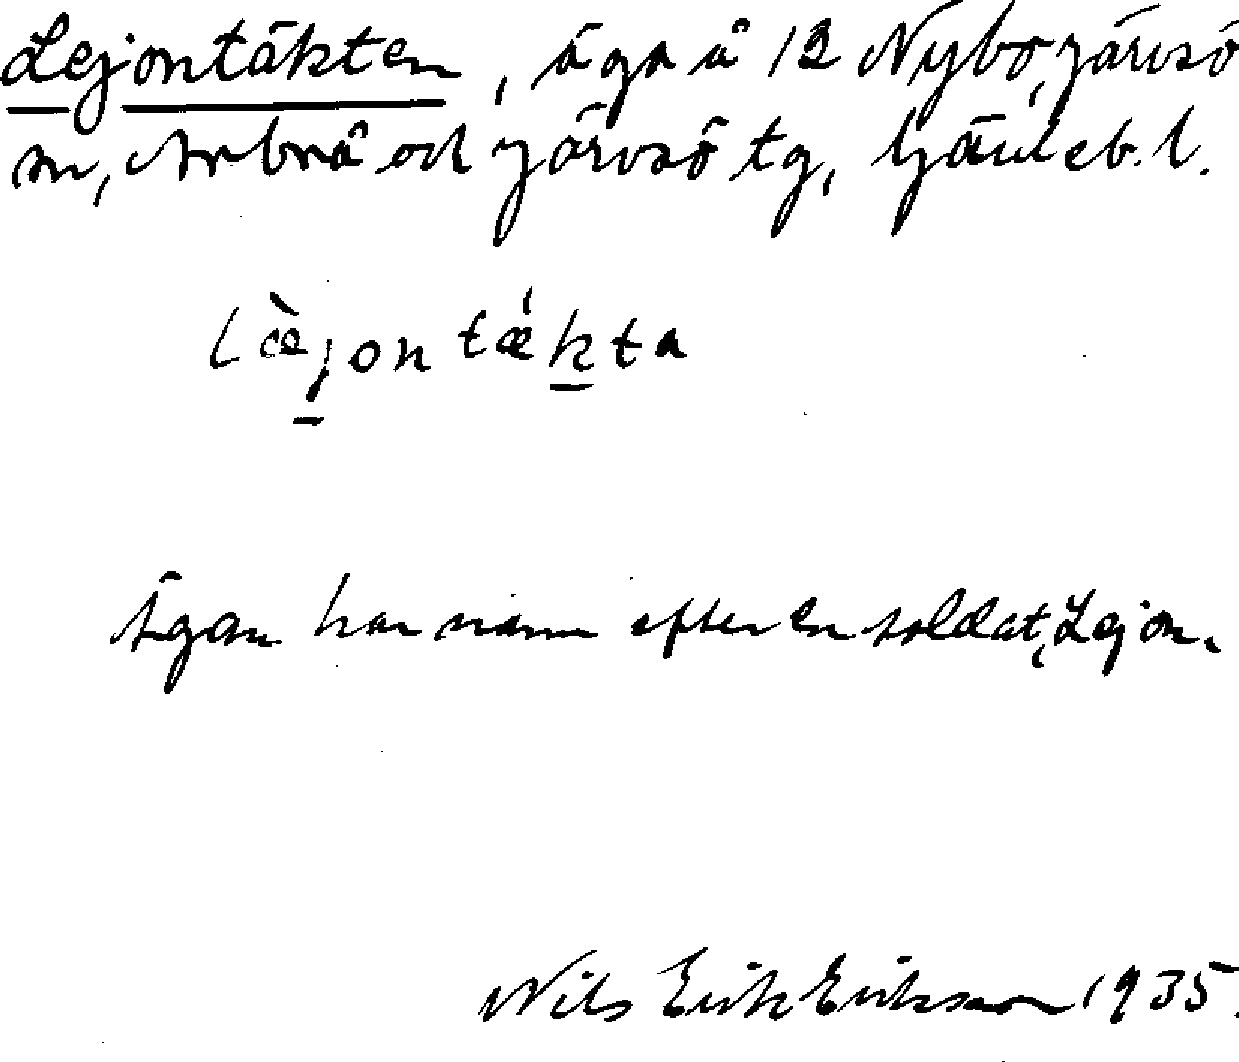 Lejontäkten, äga å 12 Nybo, Järvsö
sn, Arbrå och Järvsö tg, Gävleb. l.
læ̀jontǽkta
Ägan har namn efter en soldat, Lejon.
Nils Erik Eriksson 1935.